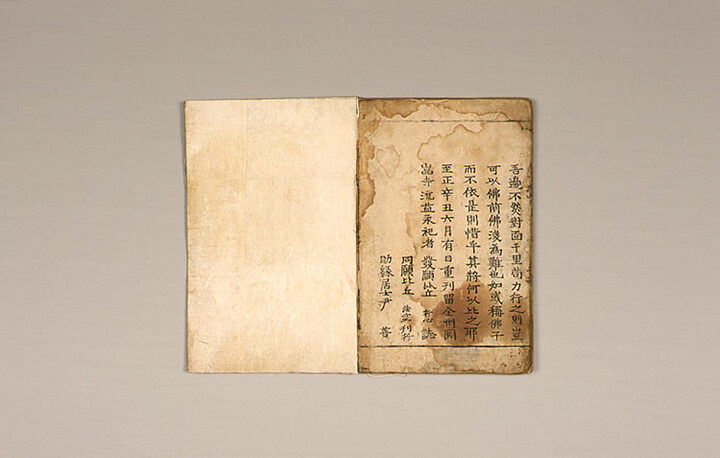 吾邊不契對面千里當力行之則豈
可以佛前佛後為難也如或稱佛子
而不依是則惜乎其將何以比之耶
至正辛丑六月有日重刊留全州圓
嵓寺流益永祀者 發願比丘 誌
同願比丘 法空 刊行
助緣居士尹 善